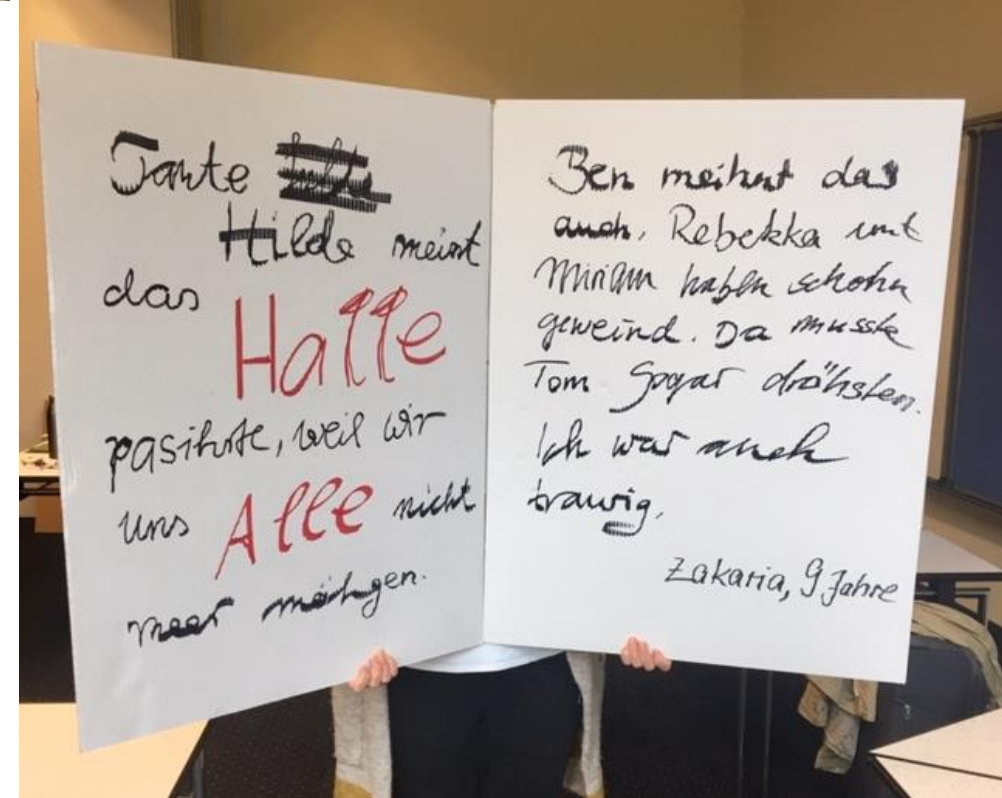 Tante
Hilde meint
das Halle
pasihrte, weil wir
uns Alle nicht
meer möhgen.
Ben meihnt das
auch, Rebekka unt
Miriam haben schohn
geweind. Da musste
Tom Sogar dröhsten.
Ich war auch
trauwig,
Zakaria, 9 Jahre